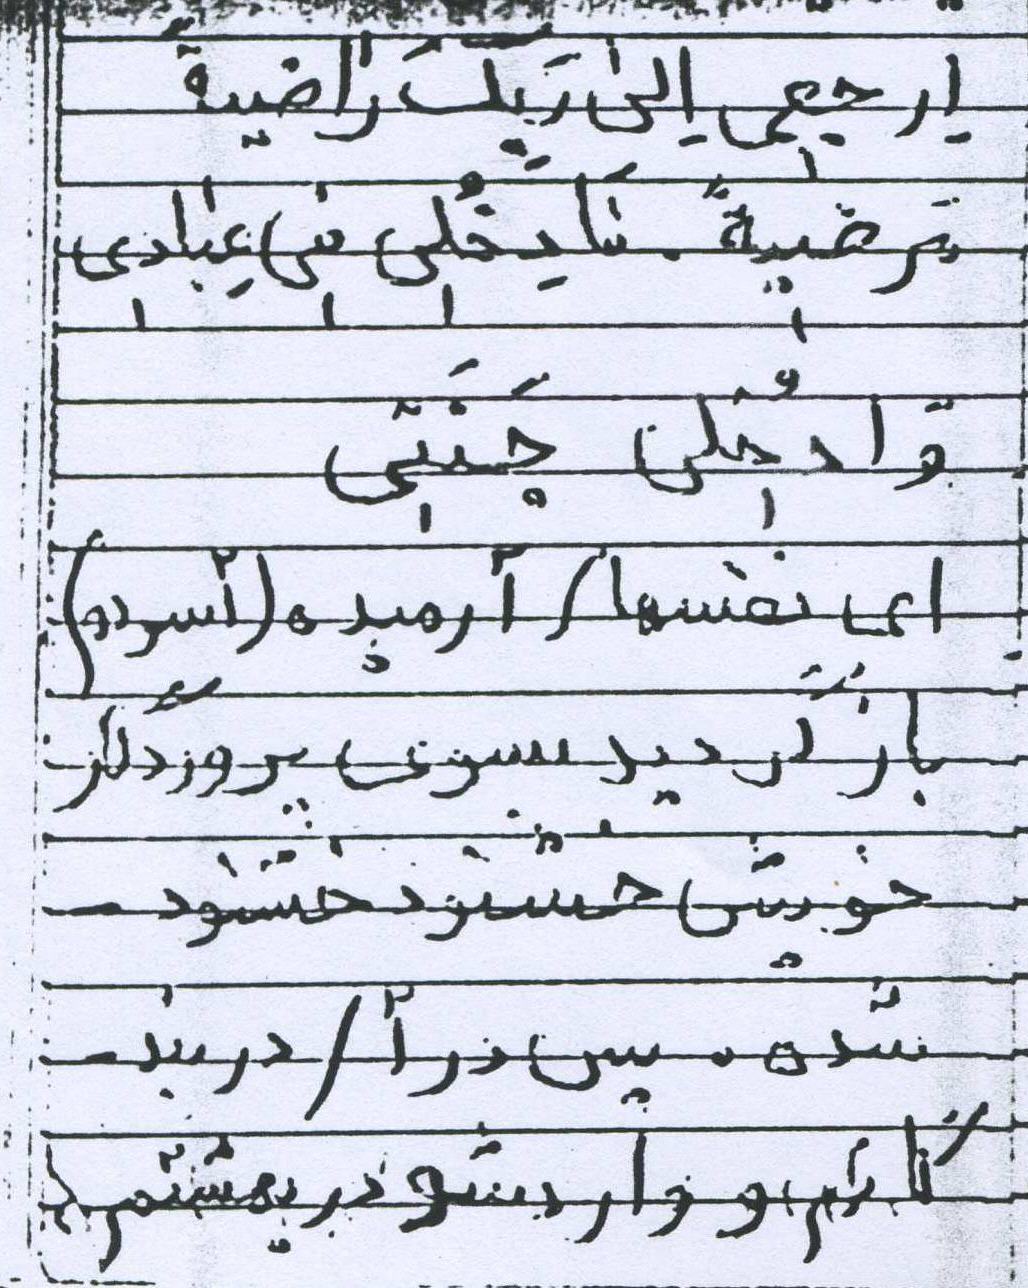 اِرجِعِی اِلیٰ رَبِّکَ رٰاضِیَةً
مَرضِیَةً . فَادخُلِی فِی عِبٰادِی
وَادخُلِی جَنَّتِی
ای نفسها / آرمیده (آسوده)
باز گردید بسوی پروردگار
خویش خشنود خشنود
شده . پس در آ / در بند
گانم و وارد شو در بهشتم